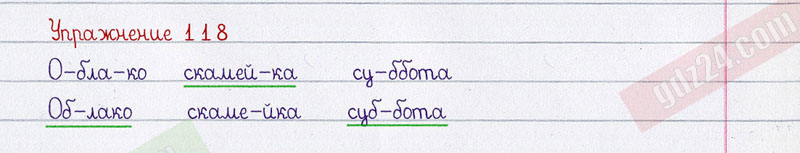 Упражнение 118
О-бла-ко скамей-ка су-ббота
Об-лако скаме-йка суб-бота
gdz24.com